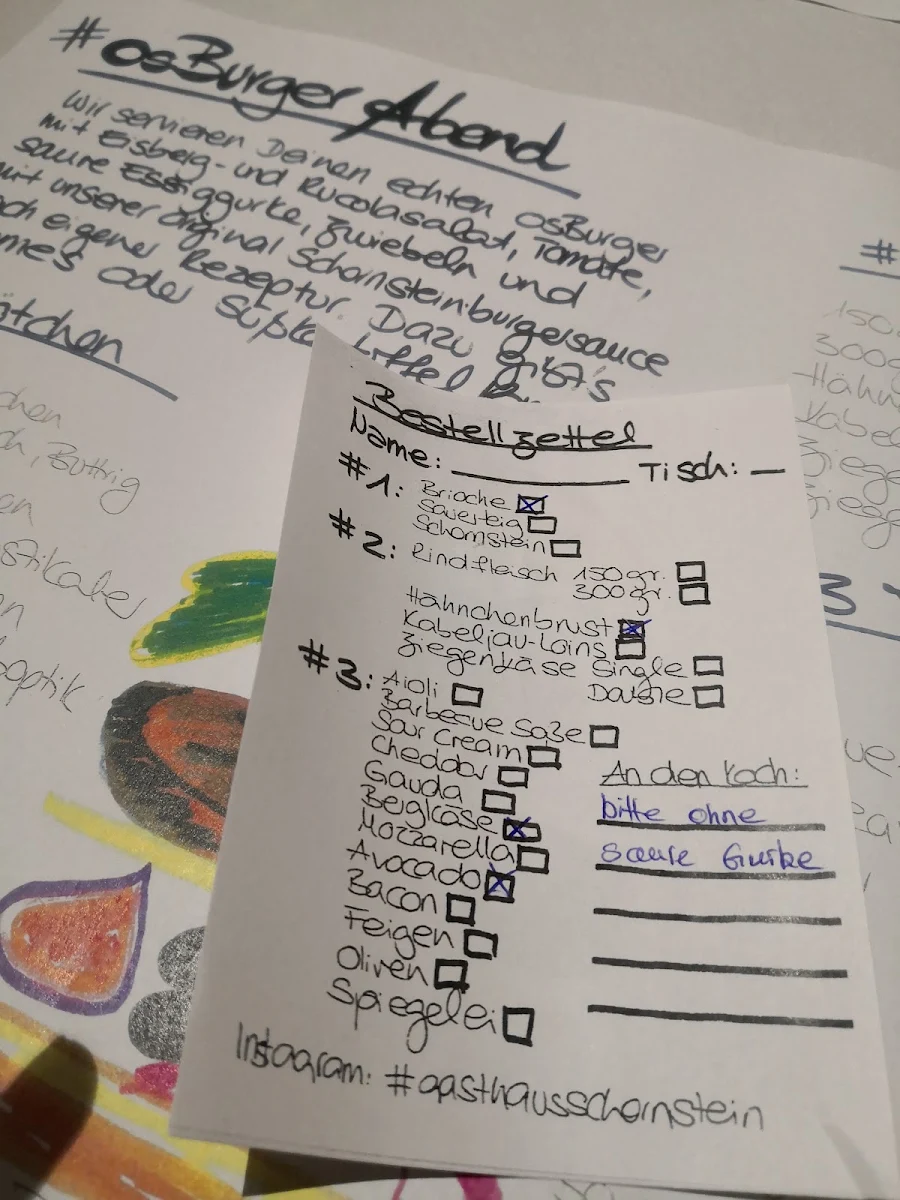 #osBurger Abend
Wir servieren Deinen echten osBurger
mit Eisberg- und Rucolasalat, Tomate,
saure Essiggurke, Zwiebeln und
unserer original Schornsteinburgersauce
eigener Rezeptur. Dazu gibt's
oder
#
150
300g
Hähn
Kabel
Zieg
Zieg
3
Buttrig
Bestellzettel
Name: Tisch:
#1: Brioche
Sauerteig
Schornstein
#2: Rindfleisch 150gr.
300gr.
Hähnchenbrust
Kabeljau-Loins
Ziegenkäse Single
Double
#3: Aioli
Barbecue Soße
Sour Cream
Cheddar
Gauda
Bergkäse
Mozzarella
Avocado
Bacon
Feigen
Oliven
Spiegelei
An den Koch:
bitte ohne
saure Gurke
Instagram: #gasthausschornstein